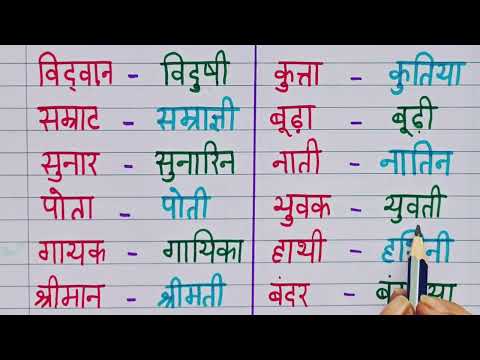 विद्वान - विदुषी
सम्राट - सम्राज्ञी
सुनार - सुनारिन
पोता - पोती
गायक - गायिका
श्रीमान - श्रीमती
कुत्ता - कुतिया
बूढ़ा - बूढ़ी
नाती - नातिन
युवक - युवती
हाथी -
बंदर -